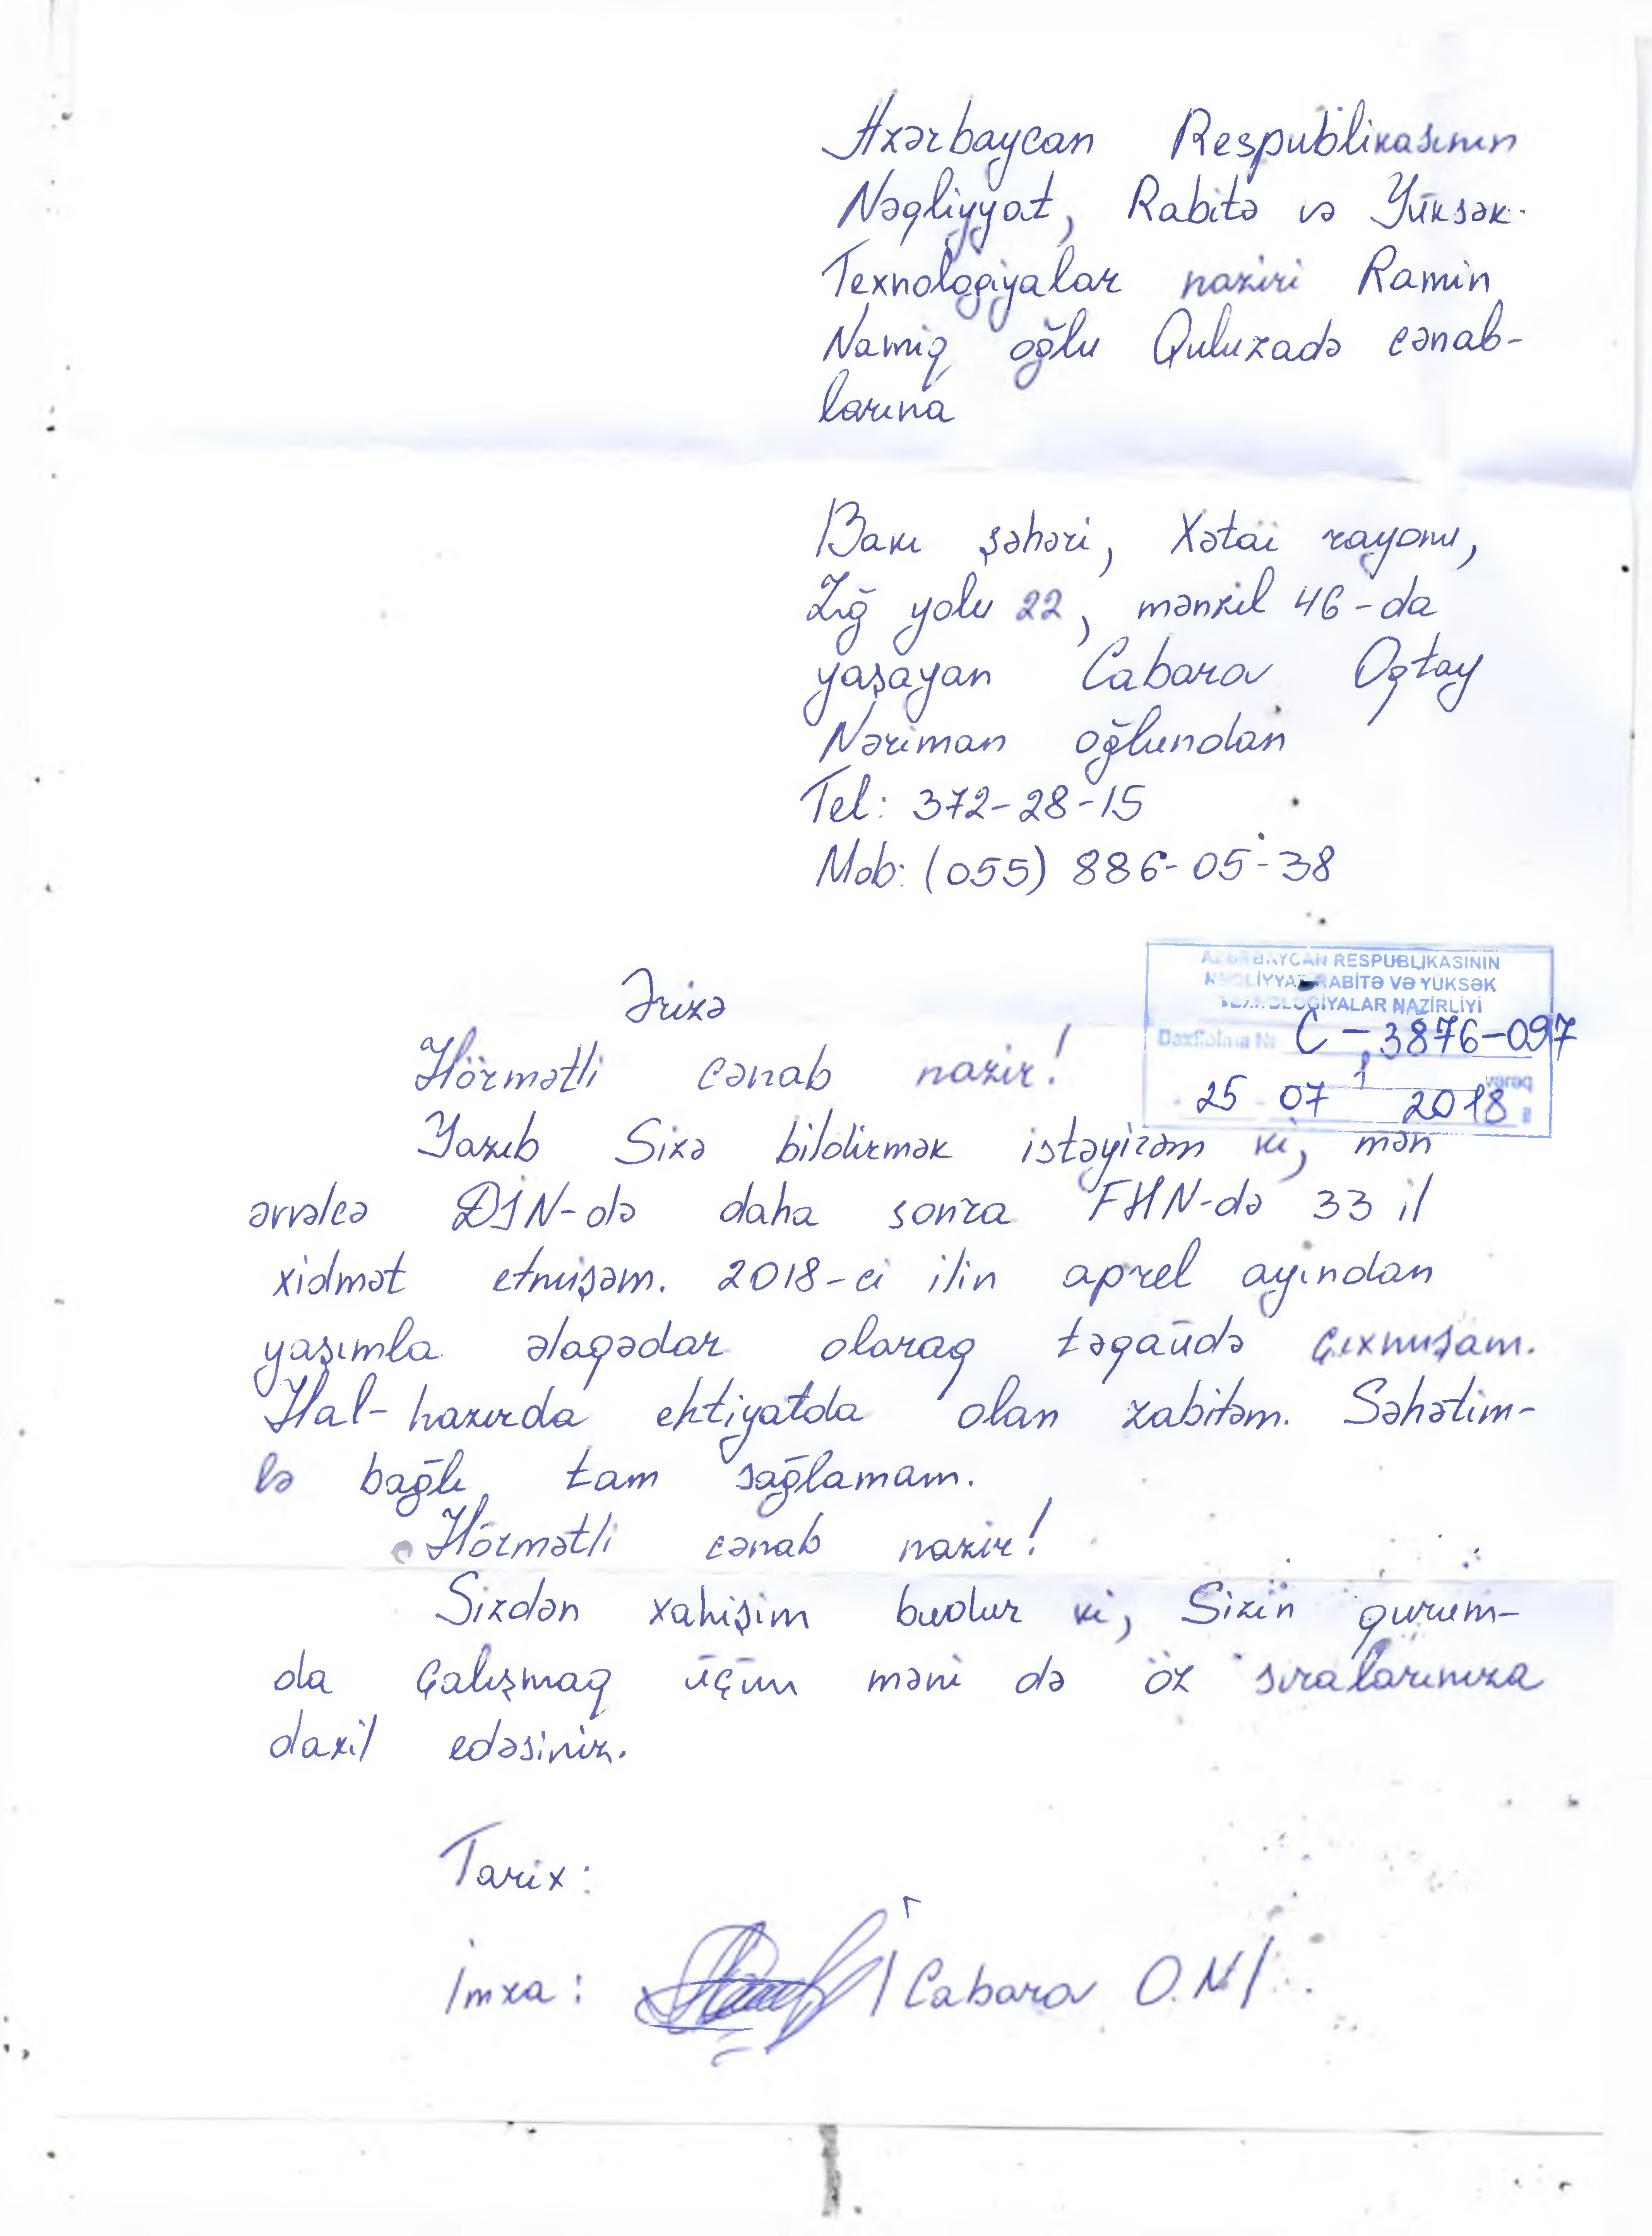 Azərbaycan Respublikasının
Nəqliyyat, Rabitə və Yüksək
Texnologiyalar naziri Ramin
Namiq oğlu Quluzadə cənab-
larına
Bakı şəhəri, Xətai rayonu,
Zığ yolu 22, mənzil 46-da
yaşayan Cabarov Oqtay
Nəriman oğlundan
Tel: 372-28-15
Mob: (055) 886-05-38
AZƏRBAYCAN RESPUBLIKASININ
NƏQLİYYAT RABİTƏ VƏ YÜKSƏK
TEXNOLOGİYALAR NAZİRLİYİ
Daxilolma № C-3876-097
1 vərəq
25 07 2018
Ərizə
Hörmətli cənab nazir!
Yazıb Sizə bildirmək istəyirəm ki, mən
əvvəlcə DİN-də daha sonra FHN-də 33 il
xidmət etmişəm. 2018-ci ilin aprel ayından
yaşımla əlaqədar olaraq təqaüdə çıxmışam.
Hal-hazırda ehtiyatda olan zabitəm. Səhətim-
lə bağlı tam sağlamam.
Hörmətli cənab nazir!
Sizdən xahişim budur ki, Sizin qurum-
da çalışmaq üçün məni də öz sıralarınıza
daxil edəsiniz.
Tarix:
İmza: /Cabarov O.N/